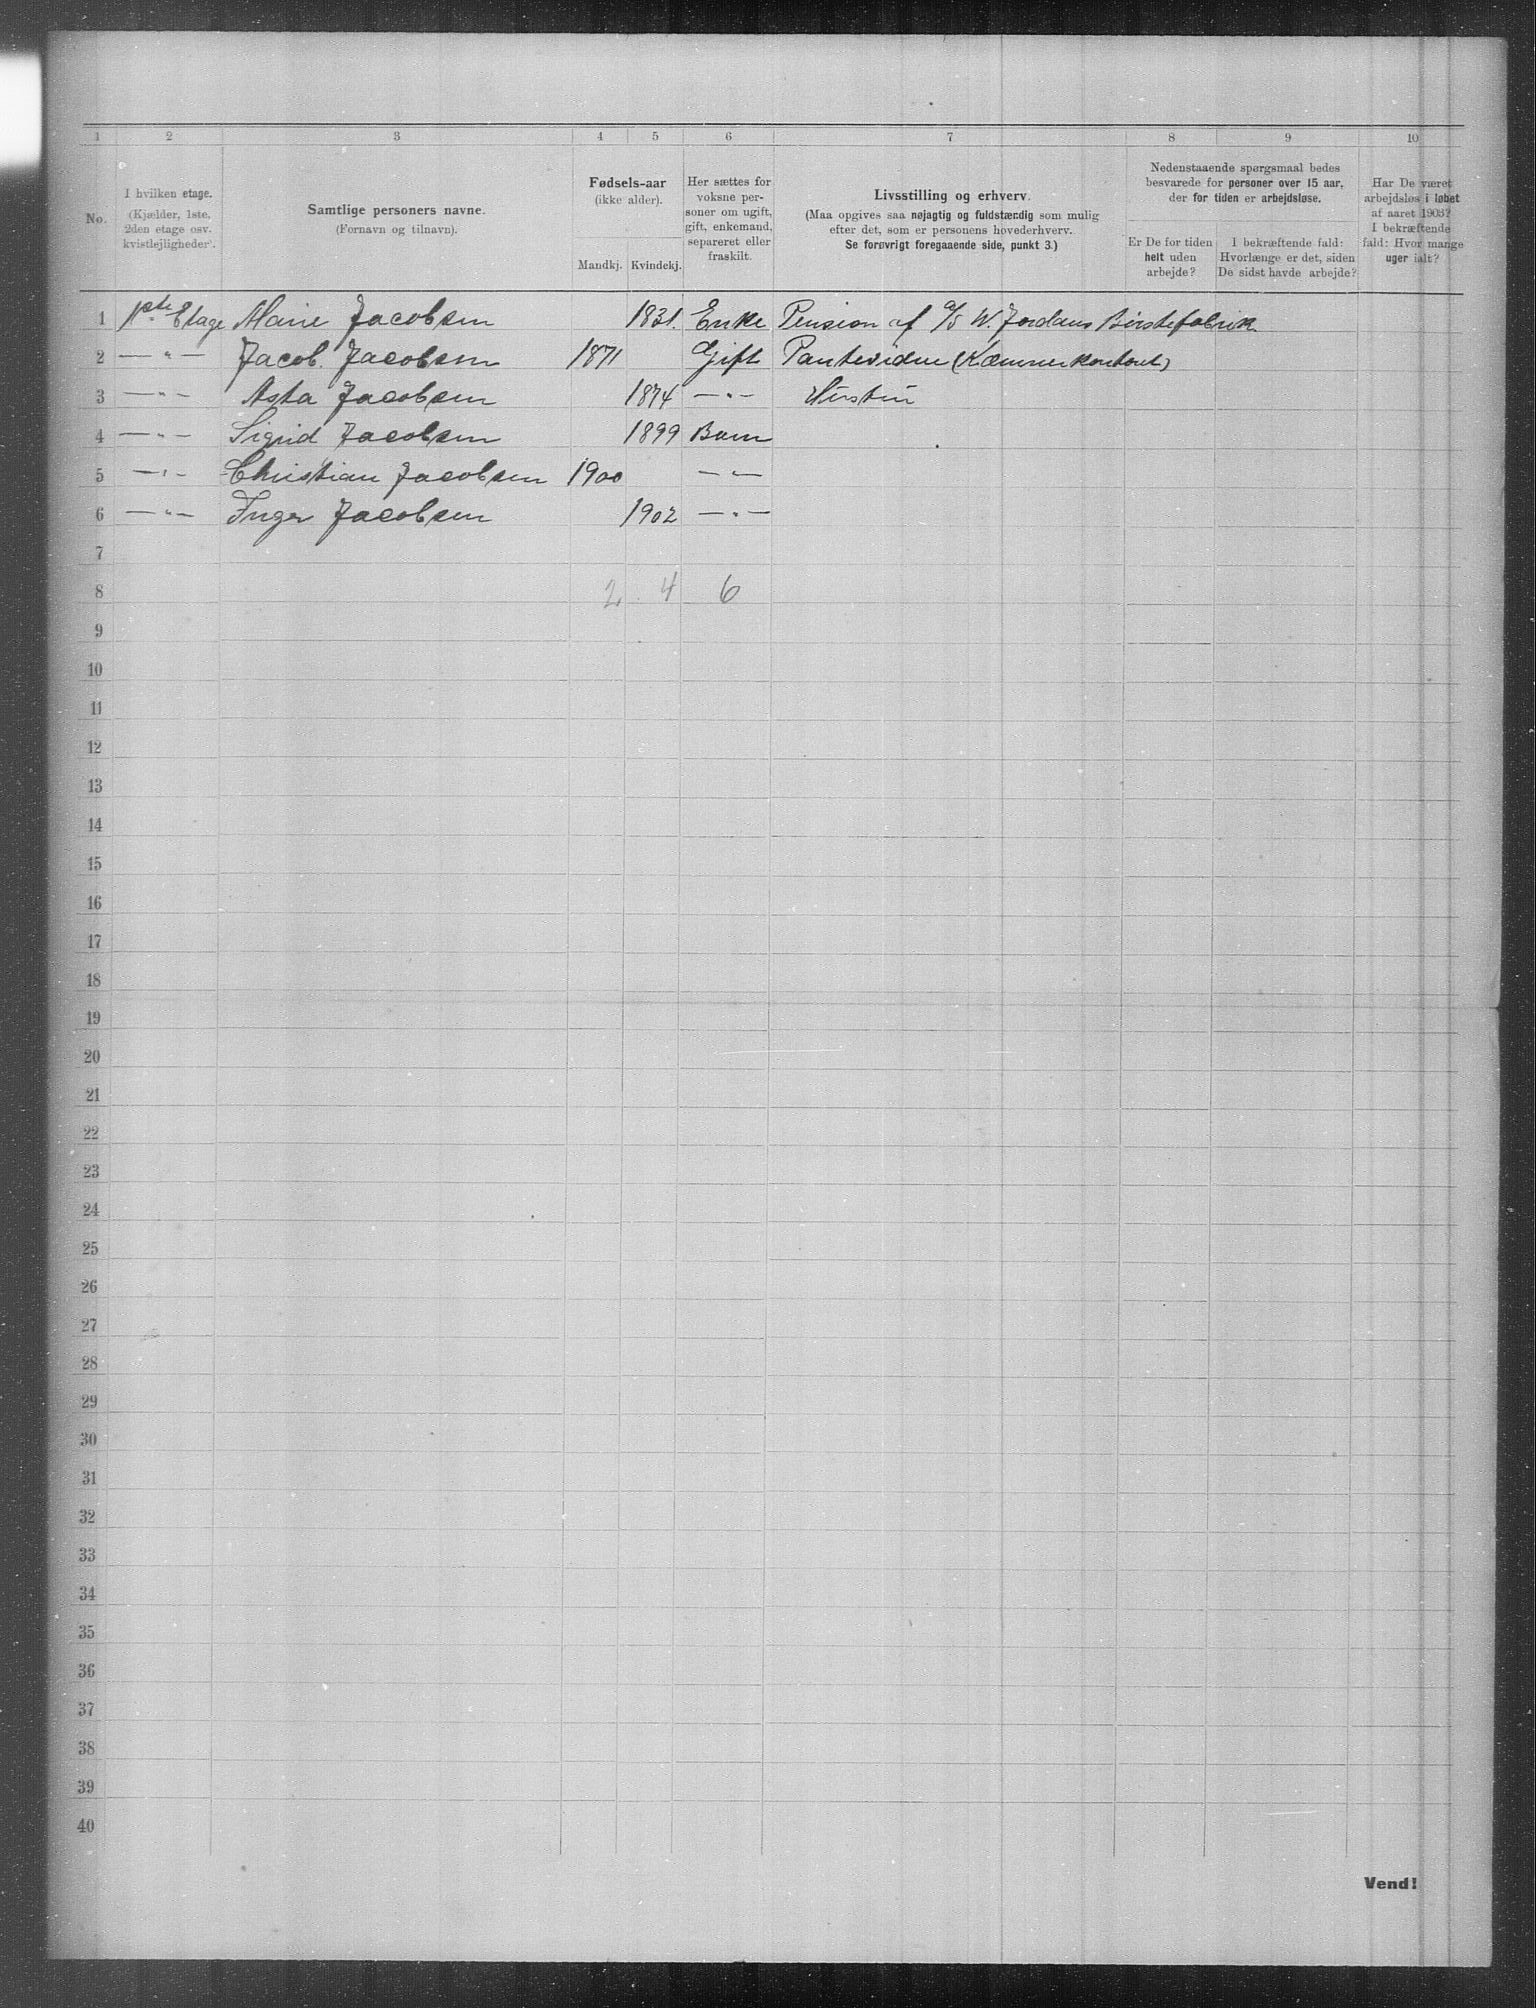 1 2 3 4 5 6 7 8 9 10
No.
I hvilken etage.
(Kjælder, 1ste,
2den etage osv.
kvistlejligheder).
Samtlige personers navne.
(Fornavn og tilnavn).
Fødsels-aar
(ikke alder).
Mandkj. Kvindekj.
Her sættes for
voksne per-
soner om ugift,
gift, enkemand,
separeret eller
fraskilt.
Livsstilling og erhverv.
(Maa opgives saa nøjagtig og fuldstændig som mulig
efter det, som er personens hovederhverv.
Se forøvrigt foregaaende side, punkt 3.)
Nedenstaaende spørgsmaal bedes
besvarede for personer over 15 aar,
der for tiden er arbejdsløse.
Er De for tiden
helt uden
arbejde?
I bekræftende fald:
Hvorlænge er det, siden
De sidst havde arbejde?
Har De været
arbejdsløs i løbet
af aaret 1903?
I bekræftende
fald: Hvor mange
uger ialt?
1 1ste Etage Marie Jacobsen 1831. Enke Pension af A/S W. Jordans Børstefabrik
2 — " — Jacob Jacobsen 1871 Gift Pantevidne (Kæmnerkontoret)
3 — " — Asta Jacobsen 1874 — " — Hustru
4 — " — Sigrid Jacobsen 1899 Barn
5 — " — Christian Jacobsen 1900 — " —
6 — " — Inger Jacobsen 1902 — " —
7
8 2 4 6
9
10
11
12
13
14
15
16
17
18
19
20
21
22
23
24
25
26
27
28
29
30
31
32
33
34
35
36
37
38
39
40
Vend!